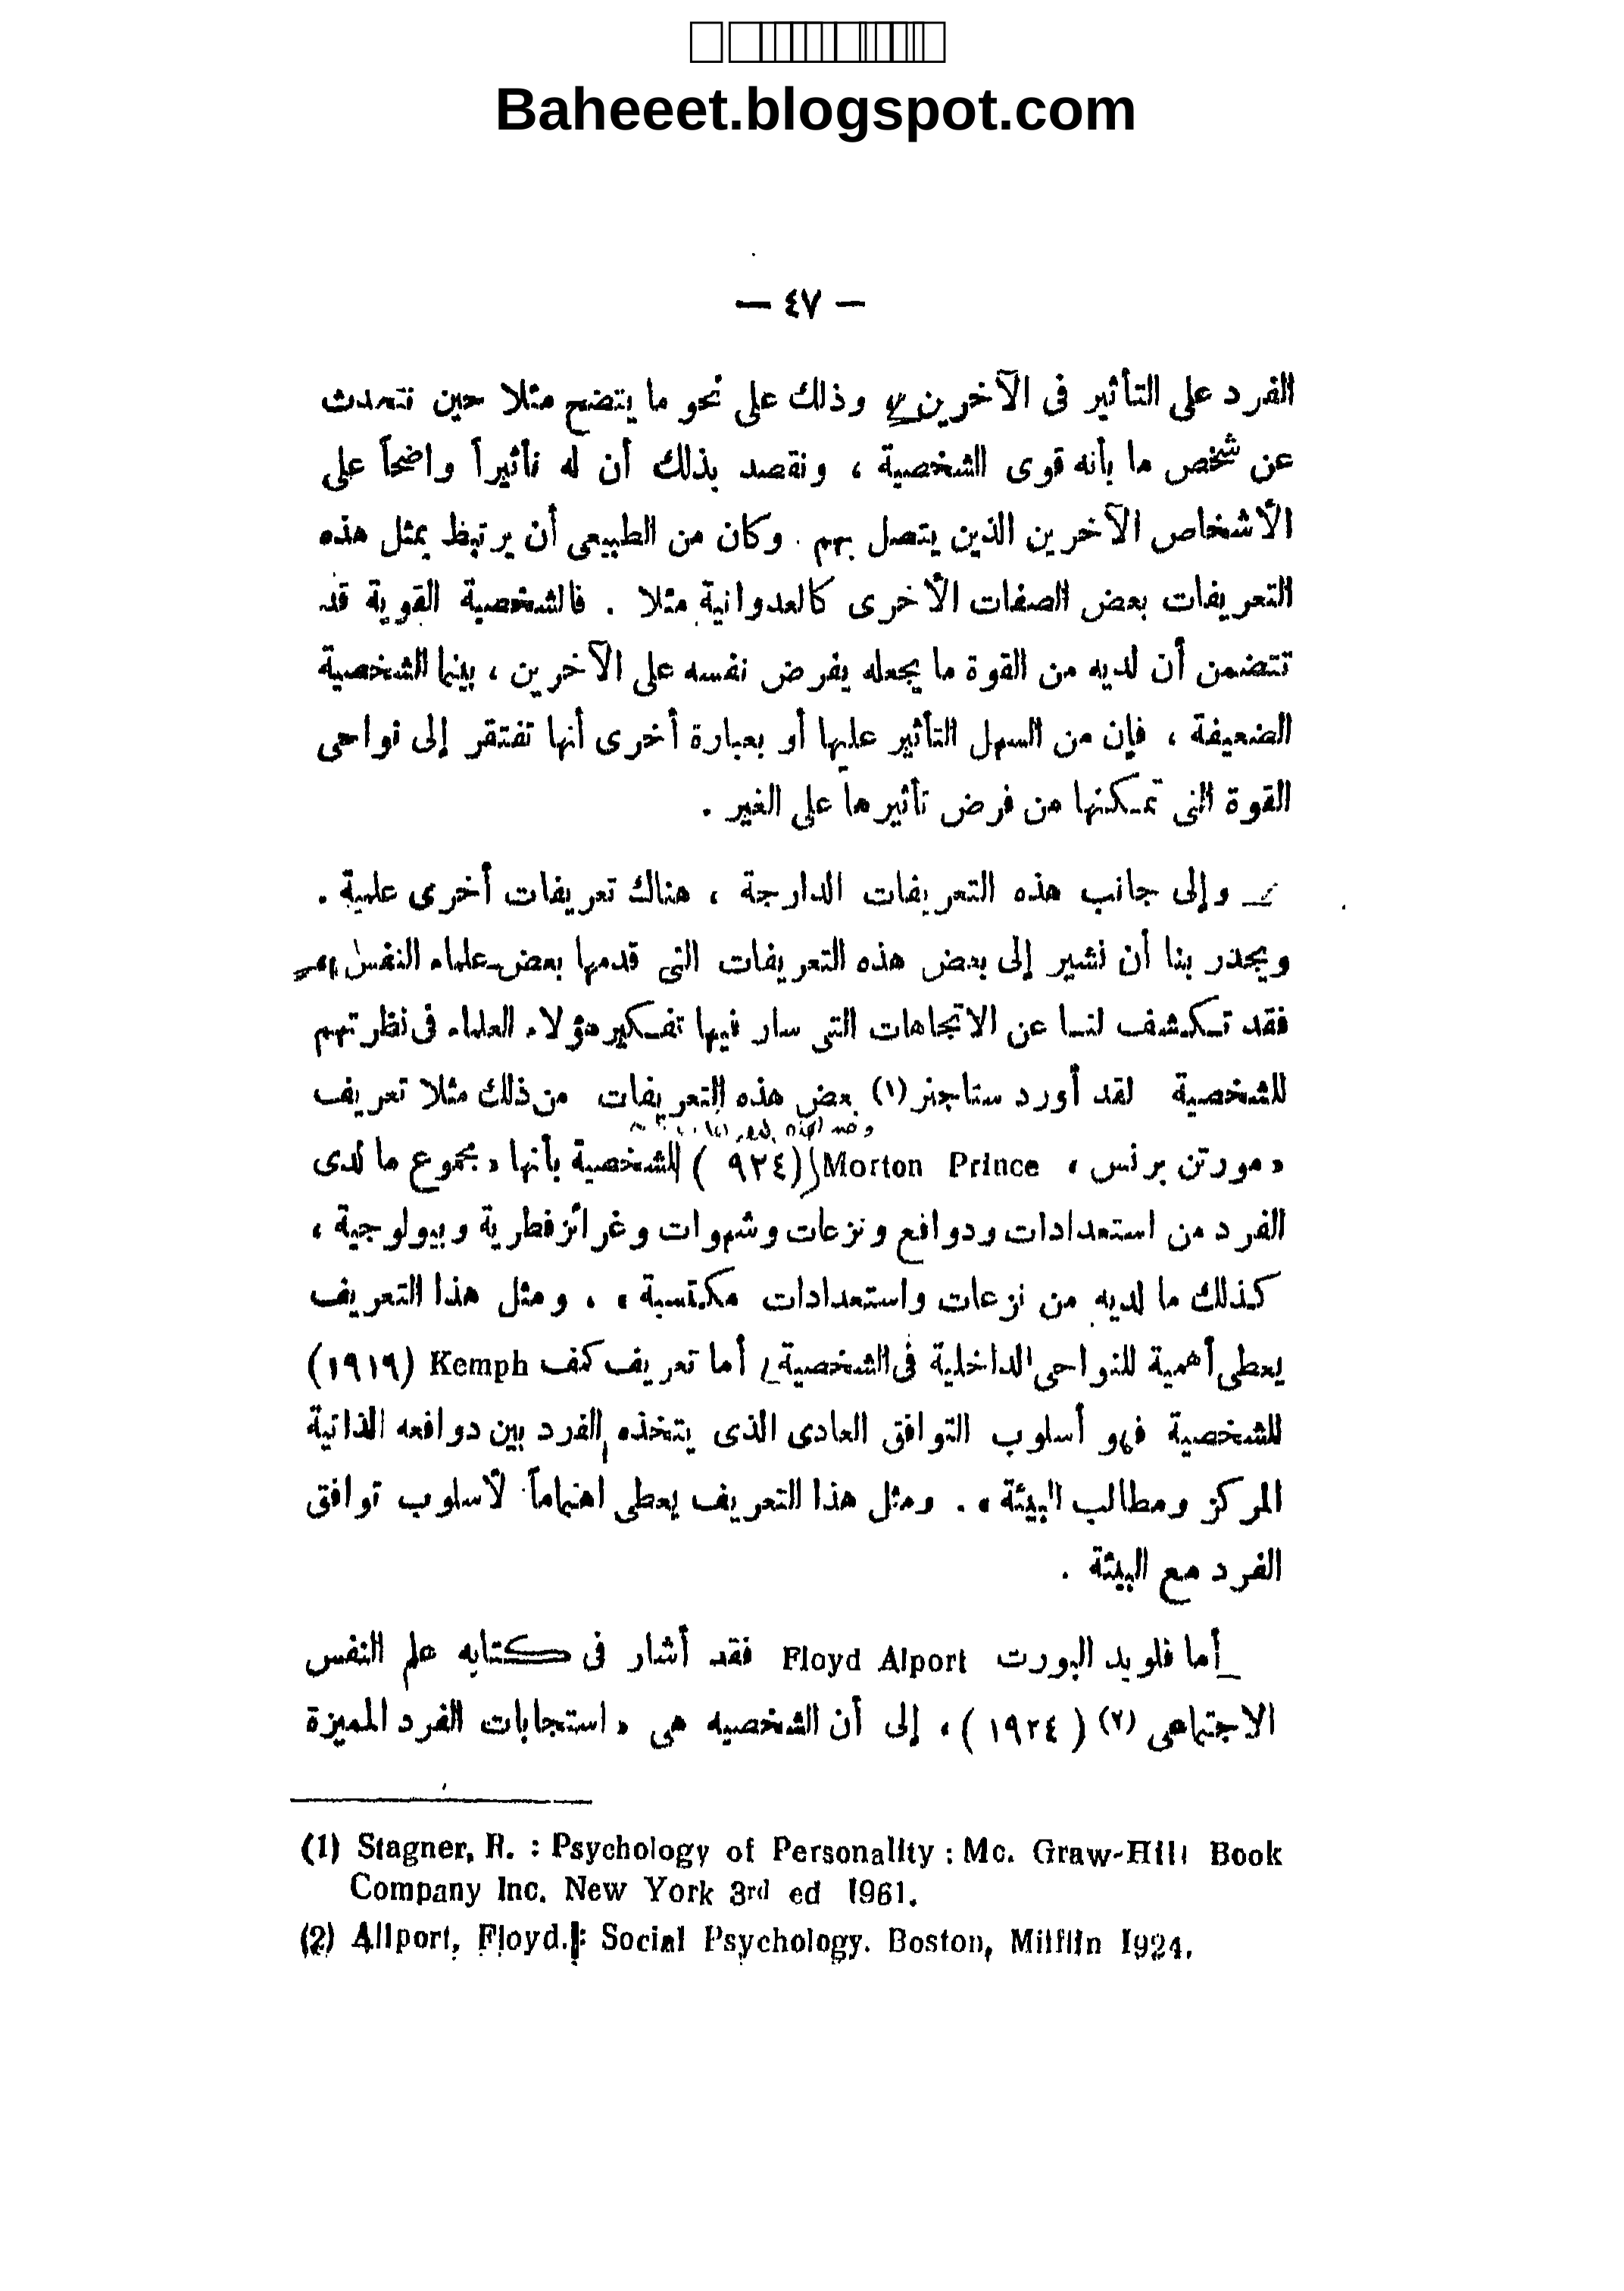 Baheeet.blogspot.com
— ٤٧ —
الفرد على التأثير فى الآخرين وذلك على نحو ما يتضح مثلا حين نتحدث
عن شخص ما بأنه قوى الشخصية ، ونقصد بذلك أن له تأثيراً واضحاً على
الأشخاص الآخرين الذين يتصل بهم . وكان من الطبيعى أن يرتبط بمثل هذه
التعريفات بعض الصفات الأخرى كالعدوانية مثلا . فالشخصية القوية قد
تتضمن أن لديه من القوة ما يجعله يفرض نفسه على الآخرين ، بينما الشخصية
الضعيفة ، فإن من السهل التأثير عليها أو بعبارة أخرى أنها تفتقر إلى نواحى
القوة التى تمكنها من فرض تأثيرها على الغير .
وإلى جانب هذه التعريفات الدارجة ، هناك تعريفات أخرى علمية .
ويجدر بنا أن نشير إلى بعض هذه التعريفات التى قدمها بعض علماء النفس
فقد تكشف لنا عن الاتجاهات التى سار فيها تفكير هؤلاء العلماء فى نظرتهم
للشخصية لقد أورد ستاجنر (١) بعض هذه التعريفات من ذلك مثلا تعريف
« مورتن برنس » Morton Prince (٩٢٤ ) للشخصية بأنها « مجموع ما لدى
الفرد من استعدادات ودوافع ونزعات وشهوات وغرائز فطرية وبيولوجية ،
كذلك ما لديه من نزعات واستعدادات مكتسبة » ، ومثل هذا التعريف
يعطى أهمية للنواحى الداخلية فى الشخصية / أما تعريف كنف Kemph (١٩١٩)
للشخصية فهو أسلوب التوافق العادى الذى يتخذه الفرد بين دوافعه الذاتية
المركز ومطالب البيئة » . ومثل هذا التعريف يعطى اهتماماً لأسلوب توافق
الفرد مع البيئة .
أما فلويد البورت Floyd Alport فقد أشار فى كتابه علم النفس
الاجتماعى (٢) ( ١٩٢٤ ) ، إلى أن الشخصيه هى « استجابات الفرد المميزة
(1) Stagner, R. : Psychology of Personality : Mc. Graw-Hill Book
Company Inc. New York 3rd ed 1961.
(2) Allport, Floyd.: Social Psychology. Boston, Mifflin 1924.